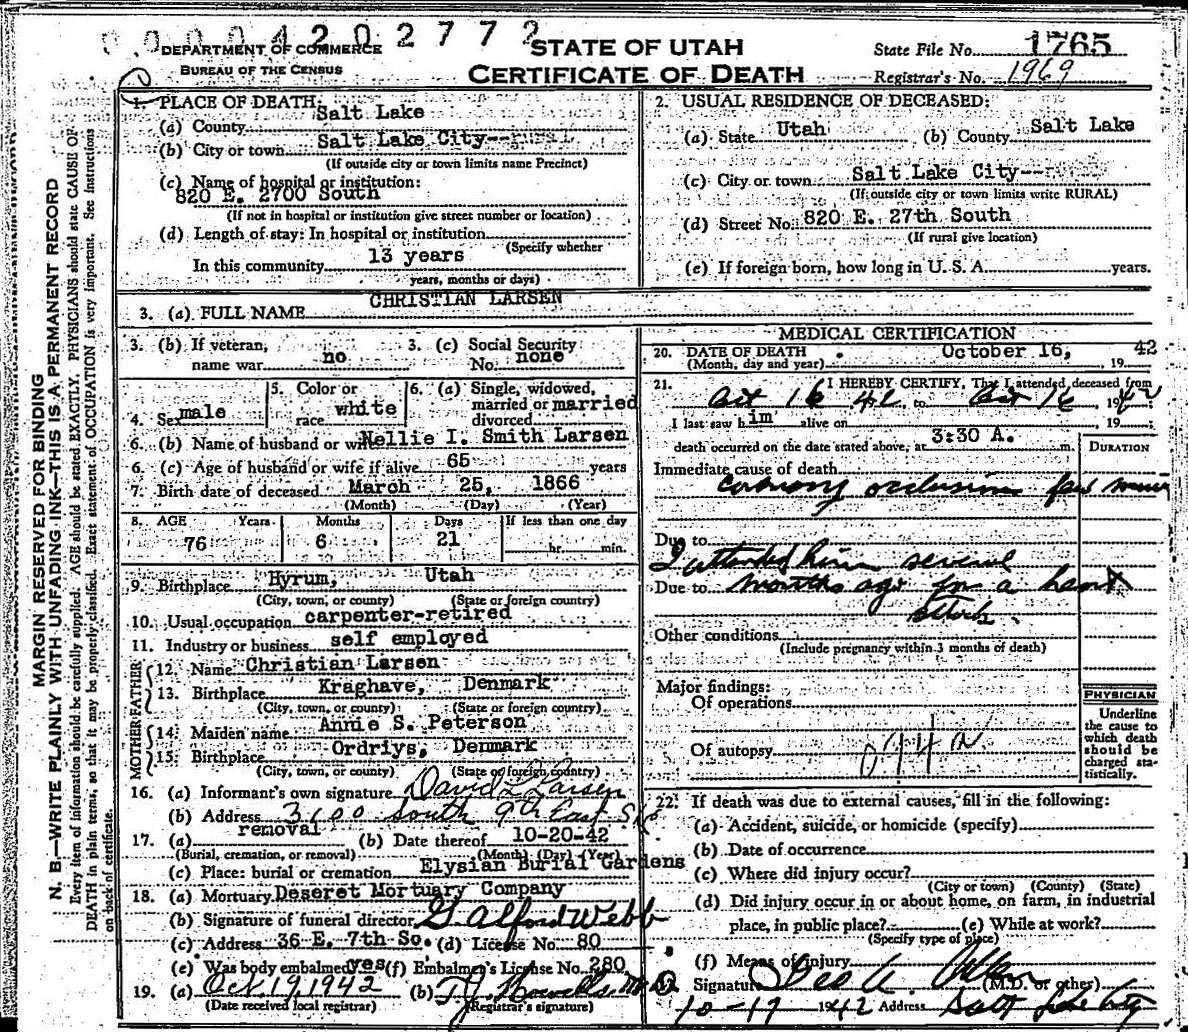 0000420277 2
DEPARTMENT OF COMMERCE
BUREAU OF THE CENSUS
STATE OF UTAH
CERTIFICATE OF DEATH
State File No. 1765
Registrar's No. 1969
MARGIN RESERVED FOR BINDING
N. B.—WRITE PLAINLY WITH UNFADING INK—THIS IS A PERMANENT RECORD
Every item of information should be carefully supplied. AGE should be stated EXACTLY. PHYSICIANS should state CAUSE OF
DEATH in plain terms, so that it may be properly classified. Exact statement of OCCUPATION is very important. See Instructions
on back of certificate.
1. PLACE OF DEATH:
(a) County Salt Lake
(b) City or town Salt Lake City--RURAL
(If outside city or town limits name Precinct)
(c) Name of hospital or institution:
820 E. 2700 South
(If not in hospital or institution give street number or location)
(d) Length of stay: In hospital or institution
(Specify whether
In this community 13 years
years, months or days)
2. USUAL RESIDENCE OF DECEASED:
(a) State Utah (b) County Salt Lake
(c) City or town Salt Lake City--
(If outside city or town limits write RURAL)
(d) Street No. 820 E. 27th South
(If rural give location)
(e) If foreign born, how long in U. S. A. years.
3. (a) FULL NAME CHRISTIAN LARSEN
3. (b) If veteran, name war no
3. (c) Social Security No. none
4. Sex male
5. Color or race white
6. (a) Single, widowed, married or divorced married
6. (b) Name of husband or wife Nellie I. Smith Larsen
6. (c) Age of husband or wife if alive 65 years
7. Birth date of deceased March 25, 1866
(Month) (Day) (Year)
8. AGE Years Months Days If less than one day
76 6 21 hr. min.
9. Birthplace Hyrum, Utah
(City, town, or county) (State or foreign country)
10. Usual occupation carpenter-retired
11. Industry or business self employed
FATHER
12. Name Christian Larsen
13. Birthplace Kraghave, Denmark
(City, town, or county) (State or foreign country)
MOTHER
14. Maiden name Annie S. Peterson
15. Birthplace Ordriys, Denmark
(City, town, or county) (State or foreign country)
16. (a) Informant's own signature David L Larsen
(b) Address 3600 South 9th East S
17. (a) removal (b) Date thereof 10-20-42
(Burial, cremation, or removal) (Month) (Day) (Year)
(c) Place: burial or cremation Elysian Burial Gardens
18. (a) Mortuary Deseret Mortuary Company
(b) Signature of funeral director G. Alford Webb
(c) Address 36 E. 7th So. (d) License No. 80
(e) Was body embalmed yes (f) Embalmer's License No. 280
19. (a) Oct. 19, 1942 (b) T J Howells M.D.
(Date received local registrar) (Registrar's signature)
MEDICAL CERTIFICATION
20. DATE OF DEATH October 16, 1942
(Month, day and year)
21. I HEREBY CERTIFY, That I attended deceased from
Oct 16 42 to Oct 16, 1942;
I last saw h im alive on , 19 ;
death occurred on the date stated above, at 3:30 A. m.
DURATION
Immediate cause of death
coronary occlusion few
Due to
I attended him several
Due to months ago for a heart
attack.
Other conditions
(Include pregnancy within 3 months of death)
Major findings:
Of operations
Of autopsy 094a
PHYSICIAN
Underline
the cause to
which death
should be
charged sta-
tistically.
22. If death was due to external causes, fill in the following:
(a) Accident, suicide, or homicide (specify)
(b) Date of occurrence
(c) Where did injury occur?
(City or town) (County) (State)
(d) Did injury occur in or about home, on farm, in industrial
place, in public place? (e) While at work?
(Specify type of place)
(f) Means of injury
Signature Geo A. Allen (M.D. or other)
10-17 1942 Address Salt Lake City